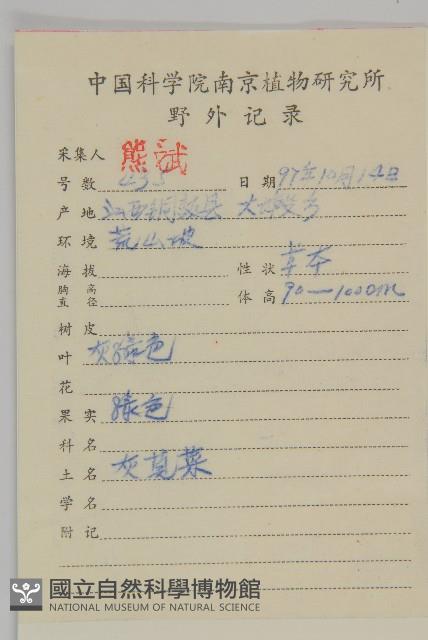 中国科学院南京植物研究所
野外记录
采集人 熊斌
号数 435 日期 97年10月14日
产地 江西铜鼓县 大塅乡
环境 荒山坡
海拔 性状 草本
胸高直径 体高 90—100cm
树皮
叶 灰绿色
花
果实 绿色
科名
土名 灰莧菜
学名
附记
國立自然科學博物館
NATIONAL MUSEUM OF NATURAL SCIENCE